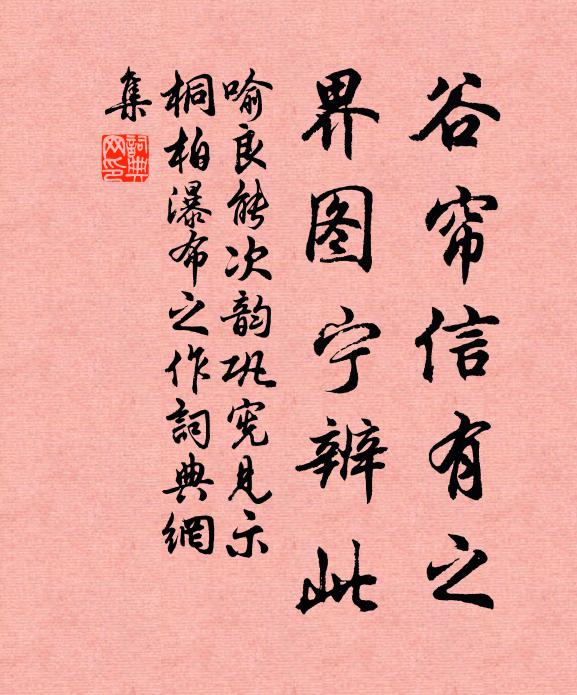 谷帘信有之
界图宁辨此
喻良能次韵巩宪见示
桐柏瀑布之作詞典網
集
詞典网印